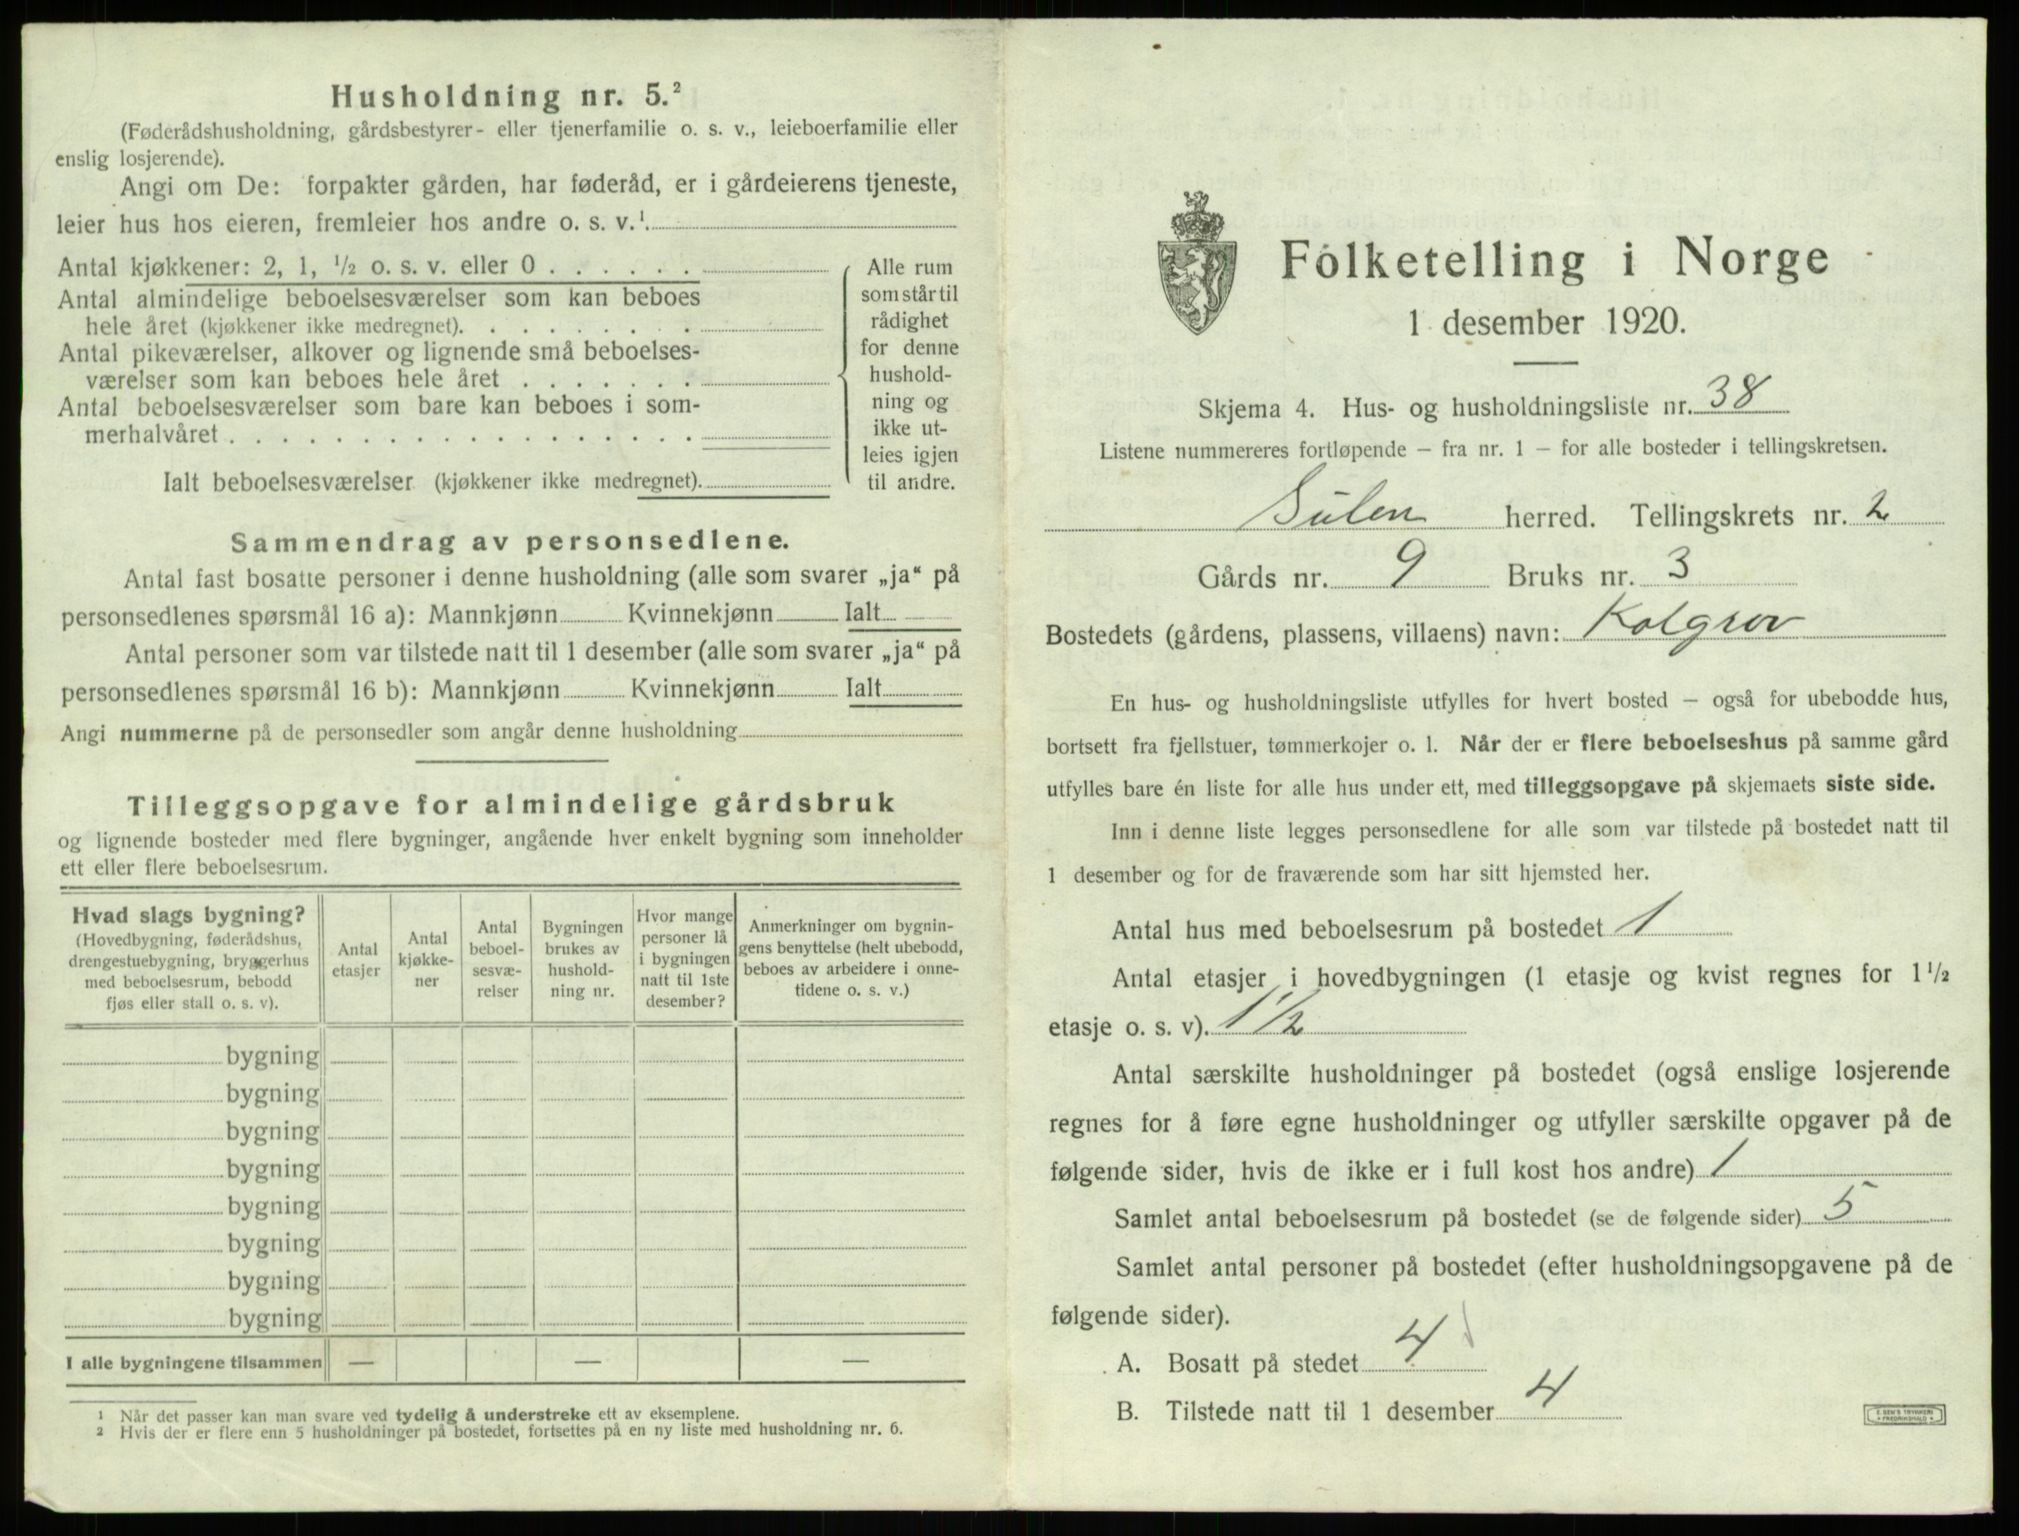 Husholdning nr. 5.²
(Føderådshusholdning, gårdsbestyrer- eller tjenerfamilie o. s. v., leieboerfamilie eller
enslig losjerende).
Angi om De: forpakter gården, har føderåd, er i gårdeierens tjeneste,
leier hus hos eieren, fremleier hos andre o. s. v.¹
Antal kjøkkener: 2, 1, ½ o. s. v. eller 0 . . . . . .
Antal almindelige beboelsesværelser som kan beboes
hele året (kjøkkener ikke medregnet). . . . . . . . .
Antal pikeværelser, alkover og lignende små beboelses-
værelser som kan beboes hele året . . . . . . .
Antal beboelsesværelser som bare kan beboes i som-
merhalvåret . . . . . . . . . . . . . . . . . .
Ialt beboelsesværelser (kjøkkener ikke medregnet).
Alle rum
som står til
rådighet
for denne
hushold-
ning og
ikke ut-
leies igjen
til andre.
Sammendrag av personsedlene.
Antal fast bosatte personer i denne husholdning (alle som svarer „ja“ på
personsedlenes spørsmål 16 a): Mannkjønn Kvinnekjønn Ialt
Antal personer som var tilstede natt til 1 desember (alle som svarer „ja“ på
personsedlenes spørsmål 16 b): Mannkjønn Kvinnekjønn Ialt
Angi nummerne på de personsedler som angår denne husholdning
Tilleggsopgave for almindelige gårdsbruk
og lignende bosteder med flere bygninger, angående hver enkelt bygning som inneholder
ett eller flere beboelsesrum.
Hvad slags bygning?
(Hovedbygning, føderådshus,
drengestuebygning, bryggerhus
med beboelsesrum, bebodd
fjøs eller stall o. s. v).
Antal
etasjer
Antal
kjøkke-
ner
Antal
beboel-
sesvæ-
relser
Bygningen
brukes av
hushold-
ning nr.
Hvor mange
personer lå
i bygningen
natt til 1ste
desember?
Anmerkninger om bygnin-
gens benyttelse (helt ubebodd,
beboes av arbeidere i onne-
tidene o. s. v.)
bygning
bygning
bygning
bygning
bygning
bygning
bygning
bygning
I alle bygningene tilsammen — — —
¹ Når det passer kan man svare ved tydelig å understreke ett av eksemplene.
² Hvis der er flere enn 5 husholdninger på bostedet, fortsettes på en ny liste med husholdning nr. 6.
Folketelling i Norge
1 desember 1920.
Skjema 4. Hus- og husholdningsliste nr. 38
Listene nummereres fortløpende — fra nr. 1 — for alle bosteder i tellingskretsen.
Sulen herred. Tellingskrets nr. 2
Gårds nr. 9 Bruks nr. 3
Bostedets (gårdens, plassens, villaens) navn: Kolgrov
En hus- og husholdningsliste utfylles for hvert bosted — også for ubebodde hus,
bortsett fra fjellstuer, tømmerkojer o. l. Når der er flere beboelseshus på samme gård
utfylles bare én liste for alle hus under ett, med tilleggsopgave på skjemaets siste side.
Inn i denne liste legges personsedlene for alle som var tilstede på bostedet natt til
1 desember og for de fraværende som har sitt hjemsted her.
Antal hus med beboelsesrum på bostedet 1
Antal etasjer i hovedbygningen (1 etasje og kvist regnes for 1 ½
etasje o. s. v). 1 ½
Antal særskilte husholdninger på bostedet (også enslige losjerende
regnes for å føre egne husholdninger og utfyller særskilte opgaver på de
følgende sider, hvis de ikke er i full kost hos andre) 1
Samlet antal beboelsesrum på bostedet (se de følgende sider) 5
Samlet antal personer på bostedet (efter husholdningsopgavene på de
følgende sider).
A. Bosatt på stedet 4
B. Tilstede natt til 1 desember 4